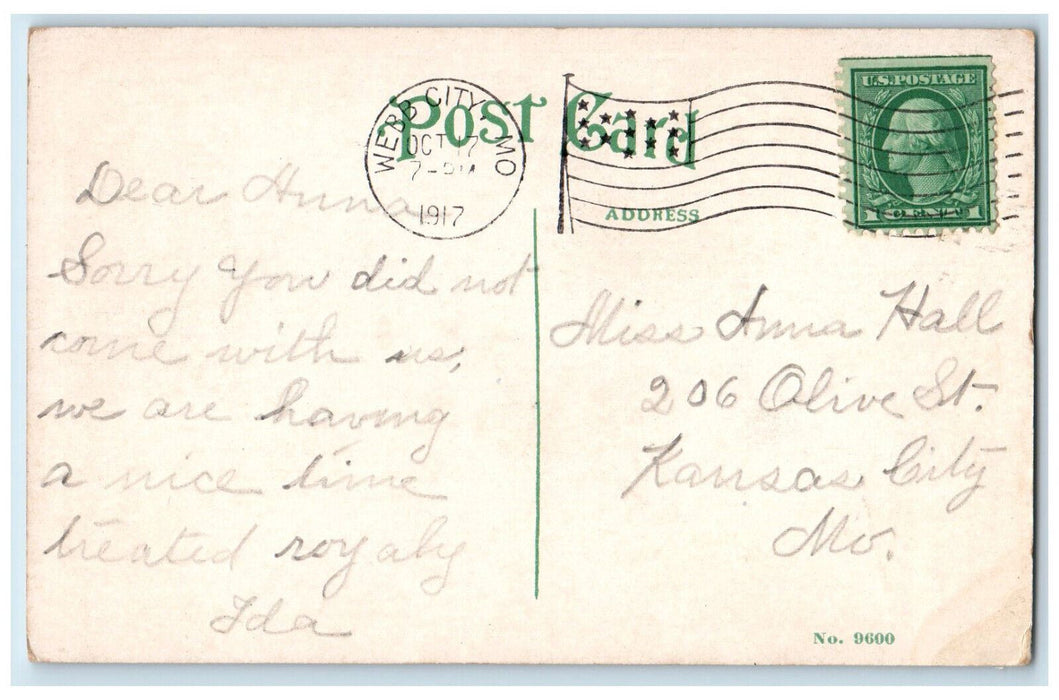 Post Card
WEBB CITY, MO
OCT 17
1917
U.S. POSTAGE
ADDRESS
Dear Anna
Sorry you did not
come with us,
we are having
a nice time
treated royaly
Ida
Miss Anna Hall
206 Olive St.
Kansas City
Mo.
No. 9600